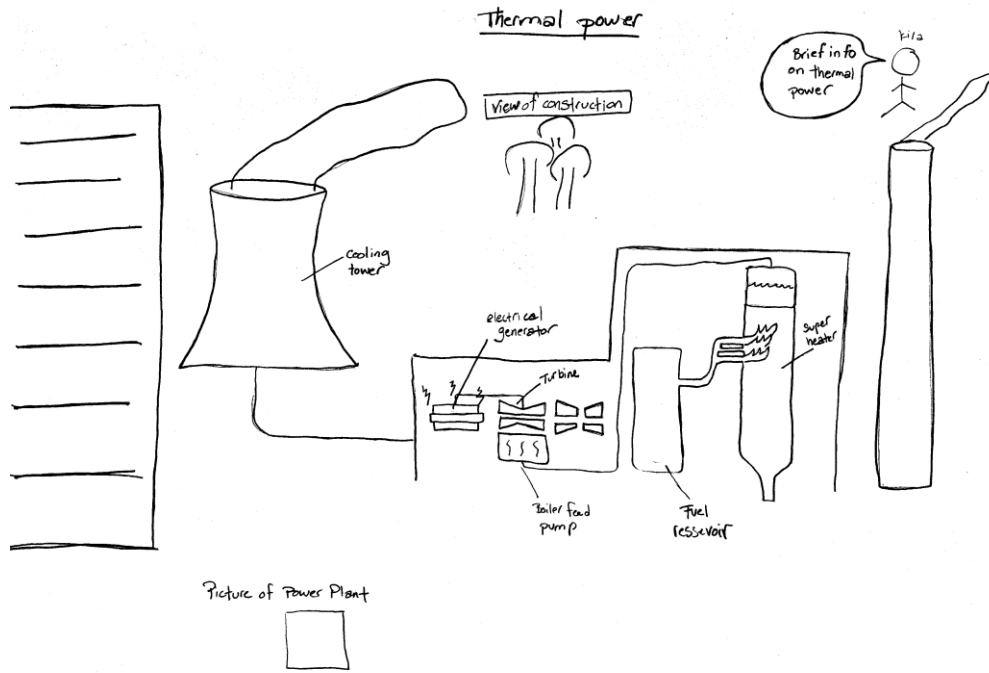 Thermal power
Kira
Brief info
on thermal
power
View of construction
Cooling
tower
electrical
generator
Turbine
Super
heater
Boiler feed
pump
Fuel
ressevoir
Picture of Power Plant